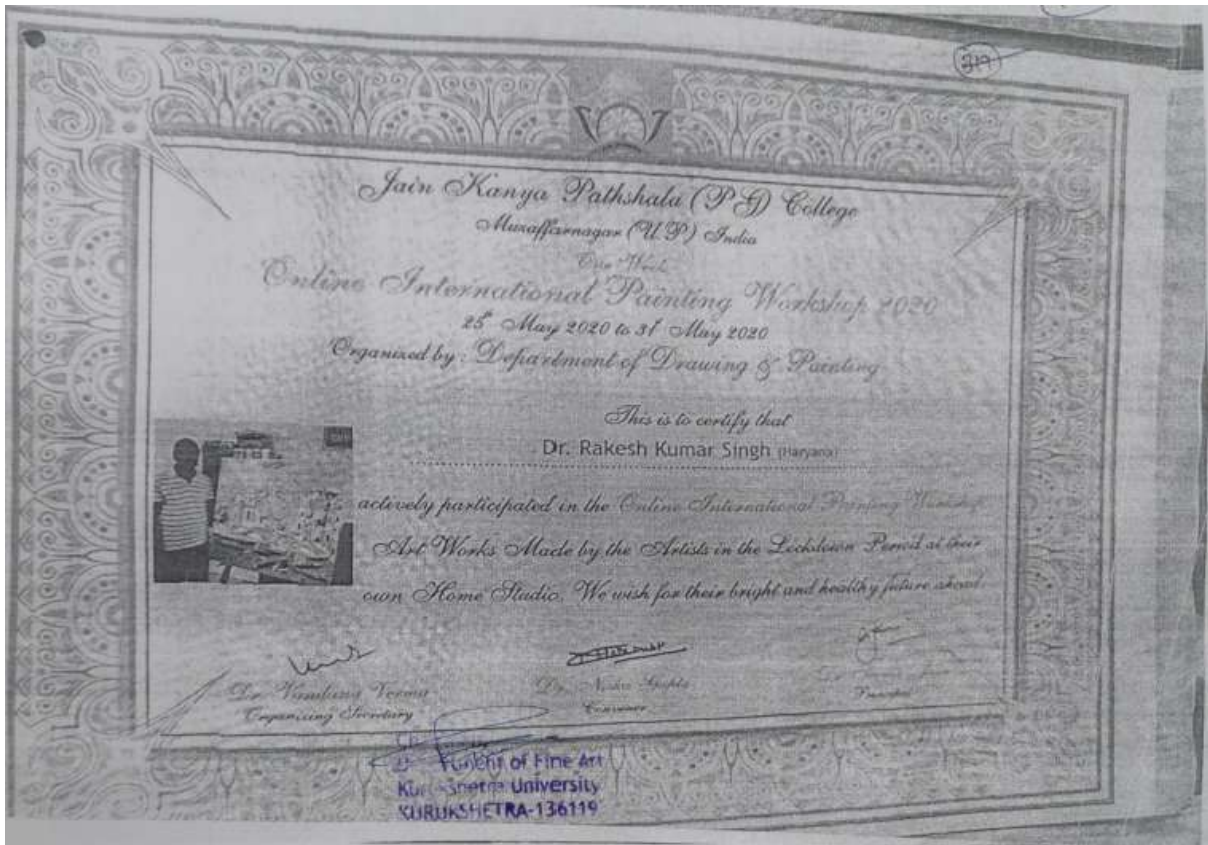 319
Jain Kanya Pathshala (P G) College
Muzaffarnagar (U.P) India
One Week
Online International Painting Workshop 2020
25th May 2020 to 31st May 2020
Organized by : Department of Drawing & Painting
This is to certify that
Dr. Rakesh Kumar Singh (Haryana)
actively participated in the Online International Painting Workshop
Art Works Made by the Artists in the Lockdown Period at their
own Home Studio. We wish for their bright and healthy future ahead.
Dr. Vandana Verma
Organizing Secretary
Dr. Nisha Gupta
Convenor
Principal
of Fine Art
Kurukshetra University
KURUKSHETRA-136119